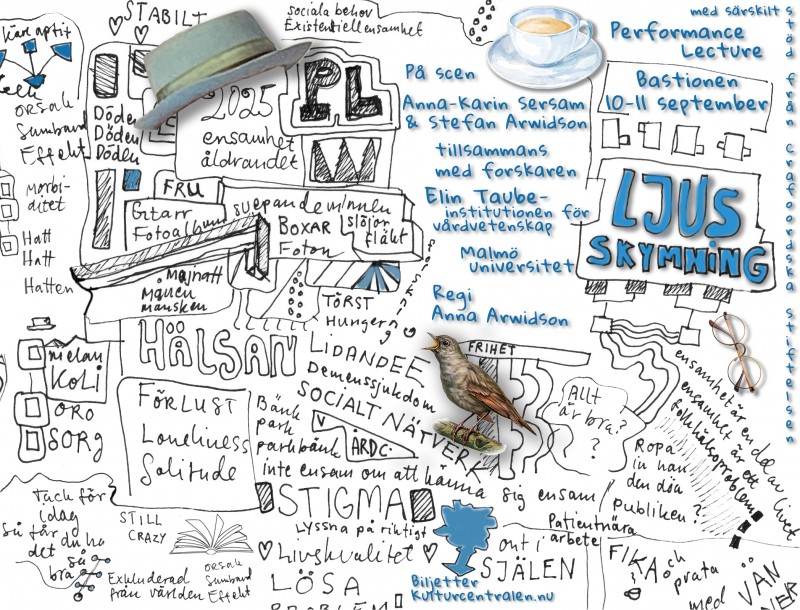 STABILT
sociala behov
Existentiell ensamhet
med särskilt stöd från Crafoordska stiftelsen
Performance
Lecture
Bastionen
10-11 september
På scen
Anna-Karin Sersam
& Stefan Arwidson
tillsammans
med forskaren
Elin Taube-
institutionen för
vårdvetenskap
Malmö
universitet
Regi
Anna Arwidson
LJUS
SKYMNING
orsak
Samband
Effekt
Morbi-
ditet
Hatt
Hatt
Hatten
Döden
Döden
Döden
2025
ensamhet
åldrandet
PL
W
FRU
Gitarr
Fotoalbum
svepande minnen
BOXAR
Foton
slöjor
fläkt
Majnatt
Månen
månsken
TÖRST
Hunger
forskning
HÄLSAN
LIDANDE
Demenssjukdom
SOCIALT NÄTVERK
FRIHET
melan
KOLi
ORO
SORG
FÖRLUST
Loneliness
Solitude
Bänk
park
parkbänk
ÄRDC.
inte ensam om att känna sig ensam
Allt
är bra?
?
ensamhet är en del av livet
ensamhet är ett
folkhälsoproblem
Ropa
in han
den döa
publiken?
STIGMA
Lyssna på riktigt
Livskvalitet
LÖSA
PROBLEM
Patientnära
arbete
ont i
SJÄLEN
Tack för
idag
Så får du ha
det
så
bra
STILL
CRAZY
Exkluderad
från världen
orsak
Samband
Effekt
Biljetter
kulturcentralen.nu
FIKA och
prata
med
VÄN